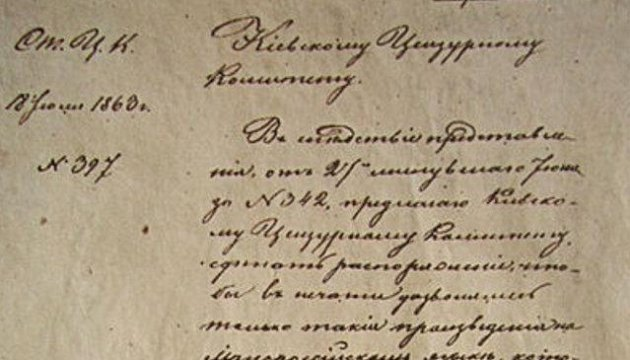 От. Ц. К.
18 Июля 1863 г.
№ 397
Кіевскому Цензурному
Комитету.
Въ слѣдствіе представле-
нія, отъ 27го минувшаго Іюня
за № 342, предлагаю Кіевско-
му Цензурному Комитету,
сдѣлать распоряженіе, что-
бы къ печати дозволялись
только такія произведенія на
Малороссійскомъ языкѣ, кото-